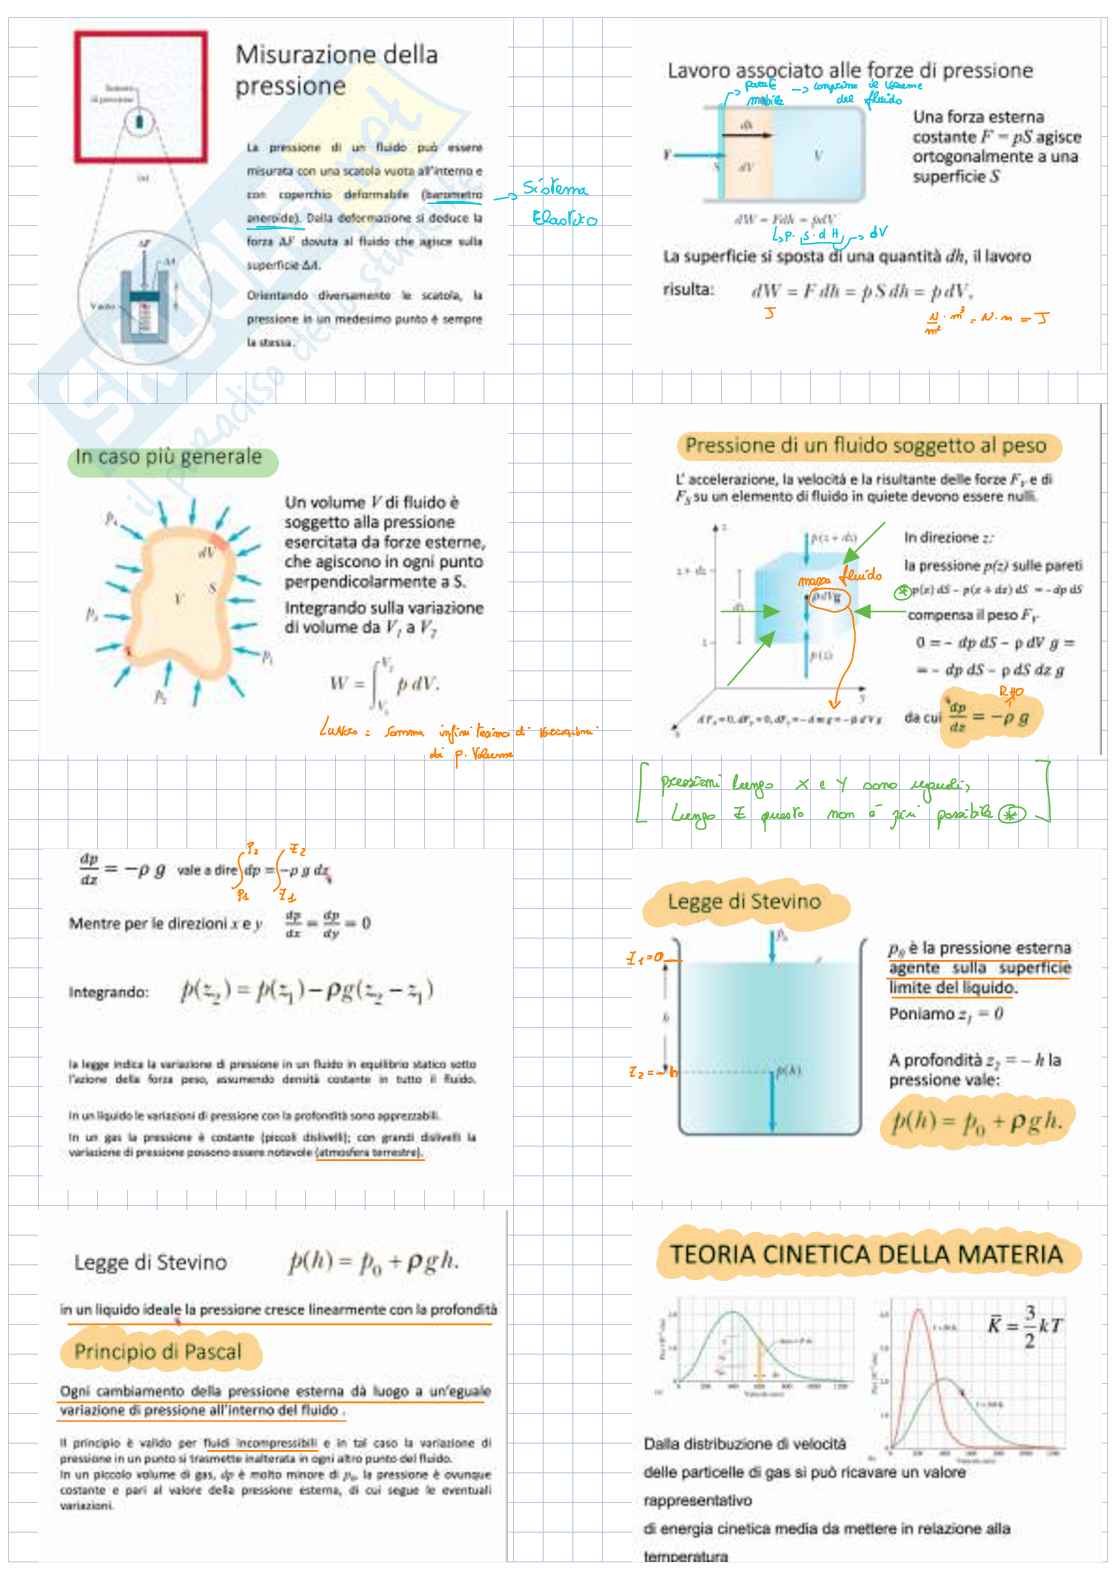 Misurazione della
pressione
La pressione di un fluido può essere
misurata con una scatola vuota all'interno e
con coperchio deformabile (barometro
aneroide). Dalla deformazione si deduce la
forza ΔF dovuta al fluido che agisce sulla
superficie ΔA.
Orientando diversamente le scatola, la
pressione in un medesimo punto è sempre
la stessa.
→ Sistema
Elastico
(a)
ΔF
ΔA
Vuoto
SKUOLA.net
il paradiso dello studente
Lavoro associato alle forze di pressione
parete mobile → comprime il volume
del fluido
Una forza esterna
costante F = pS agisce
ortogonalmente a una
superficie S
dh
F
S
dV
V
dW = Fdh = pdV
↳ p. S. dH, → dV
La superficie si sposta di una quantità dh, il lavoro
risulta: dW = F dh = p S dh = p dV,
J
N/m² · m³ = N·m = J
In caso più generale
Un volume V di fluido è
soggetto alla pressione
esercitata da forze esterne,
che agiscono in ogni punto
perpendicolarmente a S.
Integrando sulla variazione
di volume da V₁ a V₂
W = ∫ p dV.
p₄
dV
S
V
p₃
p₁
p₂
Lavoro = somma infinitesima di variazioni
di p. Volume
Pressione di un fluido soggetto al peso
L' accelerazione, la velocità e la risultante delle forze F_V e di
F_S su un elemento di fluido in quiete devono essere nulli.
In direzione z:
la pressione p(z) sulle pareti
* p(z) dS – p(z + dz) dS = – dp dS
compensa il peso F_V
0 = – dp dS – ρ dV g =
= – dp dS – ρ dS dz g
da cui dp/dz = –ρ g
RHO
z
p(z + dz)
z + dz
massa fluido
ρdVg
dz
z
p(z)
y
x
dFₓ = 0, dFᵧ = 0, dF_z = – dm g = – ρ dV g
[pressioni lungo X e Y sono uguali,
lungo Z questo non è più possibile *]
dp/dz = –ρ g vale a dire ∫ dp = ∫ –ρ g dz
P2 Z2
P1 Z1
Mentre per le direzioni x e y dp/dx = dp/dy = 0
Integrando: p(z₂) = p(z₁) – ρg(z₂ – z₁)
la legge indica la variazione di pressione in un fluido in equilibrio statico sotto
l'azione della forza peso, assumendo densità costante in tutto il fluido.
In un liquido le variazioni di pressione con la profondità sono apprezzabili.
In un gas la pressione è costante (piccoli dislivelli); con grandi dislivelli la
variazione di pressione possono essere notevole (atmosfera terrestre).
Legge di Stevino
p₀
Z1=0
h
Z2=-h
p(h)
p₀ è la pressione esterna
agente sulla superficie
limite del liquido.
Poniamo z₁ = 0
A profondità z₂ = – h la
pressione vale:
p(h) = p₀ + ρgh.
Legge di Stevino p(h) = p₀ + ρgh.
in un liquido ideale la pressione cresce linearmente con la profondità
Principio di Pascal
Ogni cambiamento della pressione esterna dà luogo a un'eguale
variazione di pressione all'interno del fluido .
Il principio è valido per fluidi incompressibili e in tal caso la variazione di
pressione in un punto si trasmette inalterata in ogni altro punto del fluido.
In un piccolo volume di gas, dp è molto minore di p₀, la pressione è ovunque
costante e pari al valore della pressione esterna, di cui segue le eventuali
variazioni.
TEORIA CINETICA DELLA MATERIA
K̄ = 3/2 kT
0 200 400 600 800 1000 1200
0 200 400 600 800 1000 1200
Dalla distribuzione di velocità
delle particelle di gas si può ricavare un valore
rappresentativo
di energia cinetica media da mettere in relazione alla
temperatura